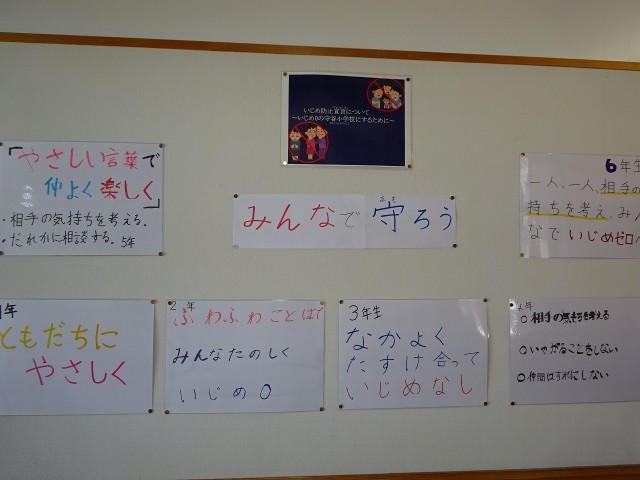 いじめ防止宣言について
～いじめ0の守谷小学校にするために～
「やさしい言葉で
仲よく楽しく」
・相手の気持ちを考える.
・だれかに相談する. 5年
みんなで守ろう
まも
6年生
一人、一人、相手の
持ちを考え、み
なでいじめゼロへ
年
ともだちに
やさしく
2年
ふわふわことばで
みんなたのしく
いじめ0
3年生
なかよく
たすけ合って
いじめなし
年
○相手の気持ちを考える
○いやがることをしない
○仲間はずれにしない